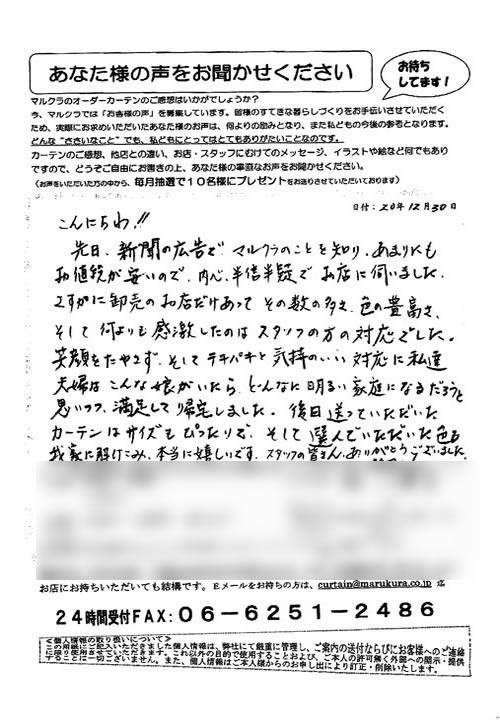 あなた様の声をお聞かせください
お待ち
してます!
マルクラのオーダーカーテンのご感想はいかがでしょうか?
今、マルクラでは「お客様の声」を募集しています。皆様のすてきな暮らしづくりをお手伝いさせていただく
ため、実際にお求めいただいたあなた様のお声は、何よりの励みとなり、また私どもの今後の参考となります。
どんな“ささいなこと”でも、私どもにとってはとてもありがたいことなのです。
カーテンのご感想、他店との違い、お店・スタッフにむけてのメッセージ、イラストや絵など何でもあり
ますので、どうぞご自由にお書きの上、あなた様の率直なお声をお聞かせください。
(お声をいただいた方の中から、毎月抽選で10名様にプレゼントをお送りさせていただいております)
日付:20年12月30日
こんにちわ!!
先日、新聞の広告で マルクラのことを知り、あまりにも
お値段が安いので、内心、半信半疑で お店に伺いました。
さすがに卸売のお店だけあって その数の多さ、色の豊富さ、
そして 何よりも 感激したのは スタッフの方の対応でした。
笑顔をたやさず、そして テキパキと 気持のいい 対応に 私達
夫婦は こんな 娘がいたら、どんなに 明るい 家庭に なるだろうと
思いつつ、満足して 帰宅しました。後日 送っていただいた
カーテンは サイズも ぴったりで、そして 選んでいただいた 色も
我家に 溶けこみ、本当に 嬉しいです。スタッフの皆さん、ありがとうございました。
お店にお持ちいただいても結構です。Eメールをお持ちの方は、curtain@marukura.co.jp 迄
24時間受付FAX:06-6251-2486
<個人情報の取り扱いについて>
この用紙にご記入いただきました個人情報は、弊社にて厳重に管理し、ご案内の送付ならびにお客様へのご連絡
に限り使用させていただきます。これ以外の目的で使用することおよび、ご本人の許可無く外部への開示・提供
することは一切ございません。また、個人情報はご本人様からのお申し出により訂正・削除いたします。